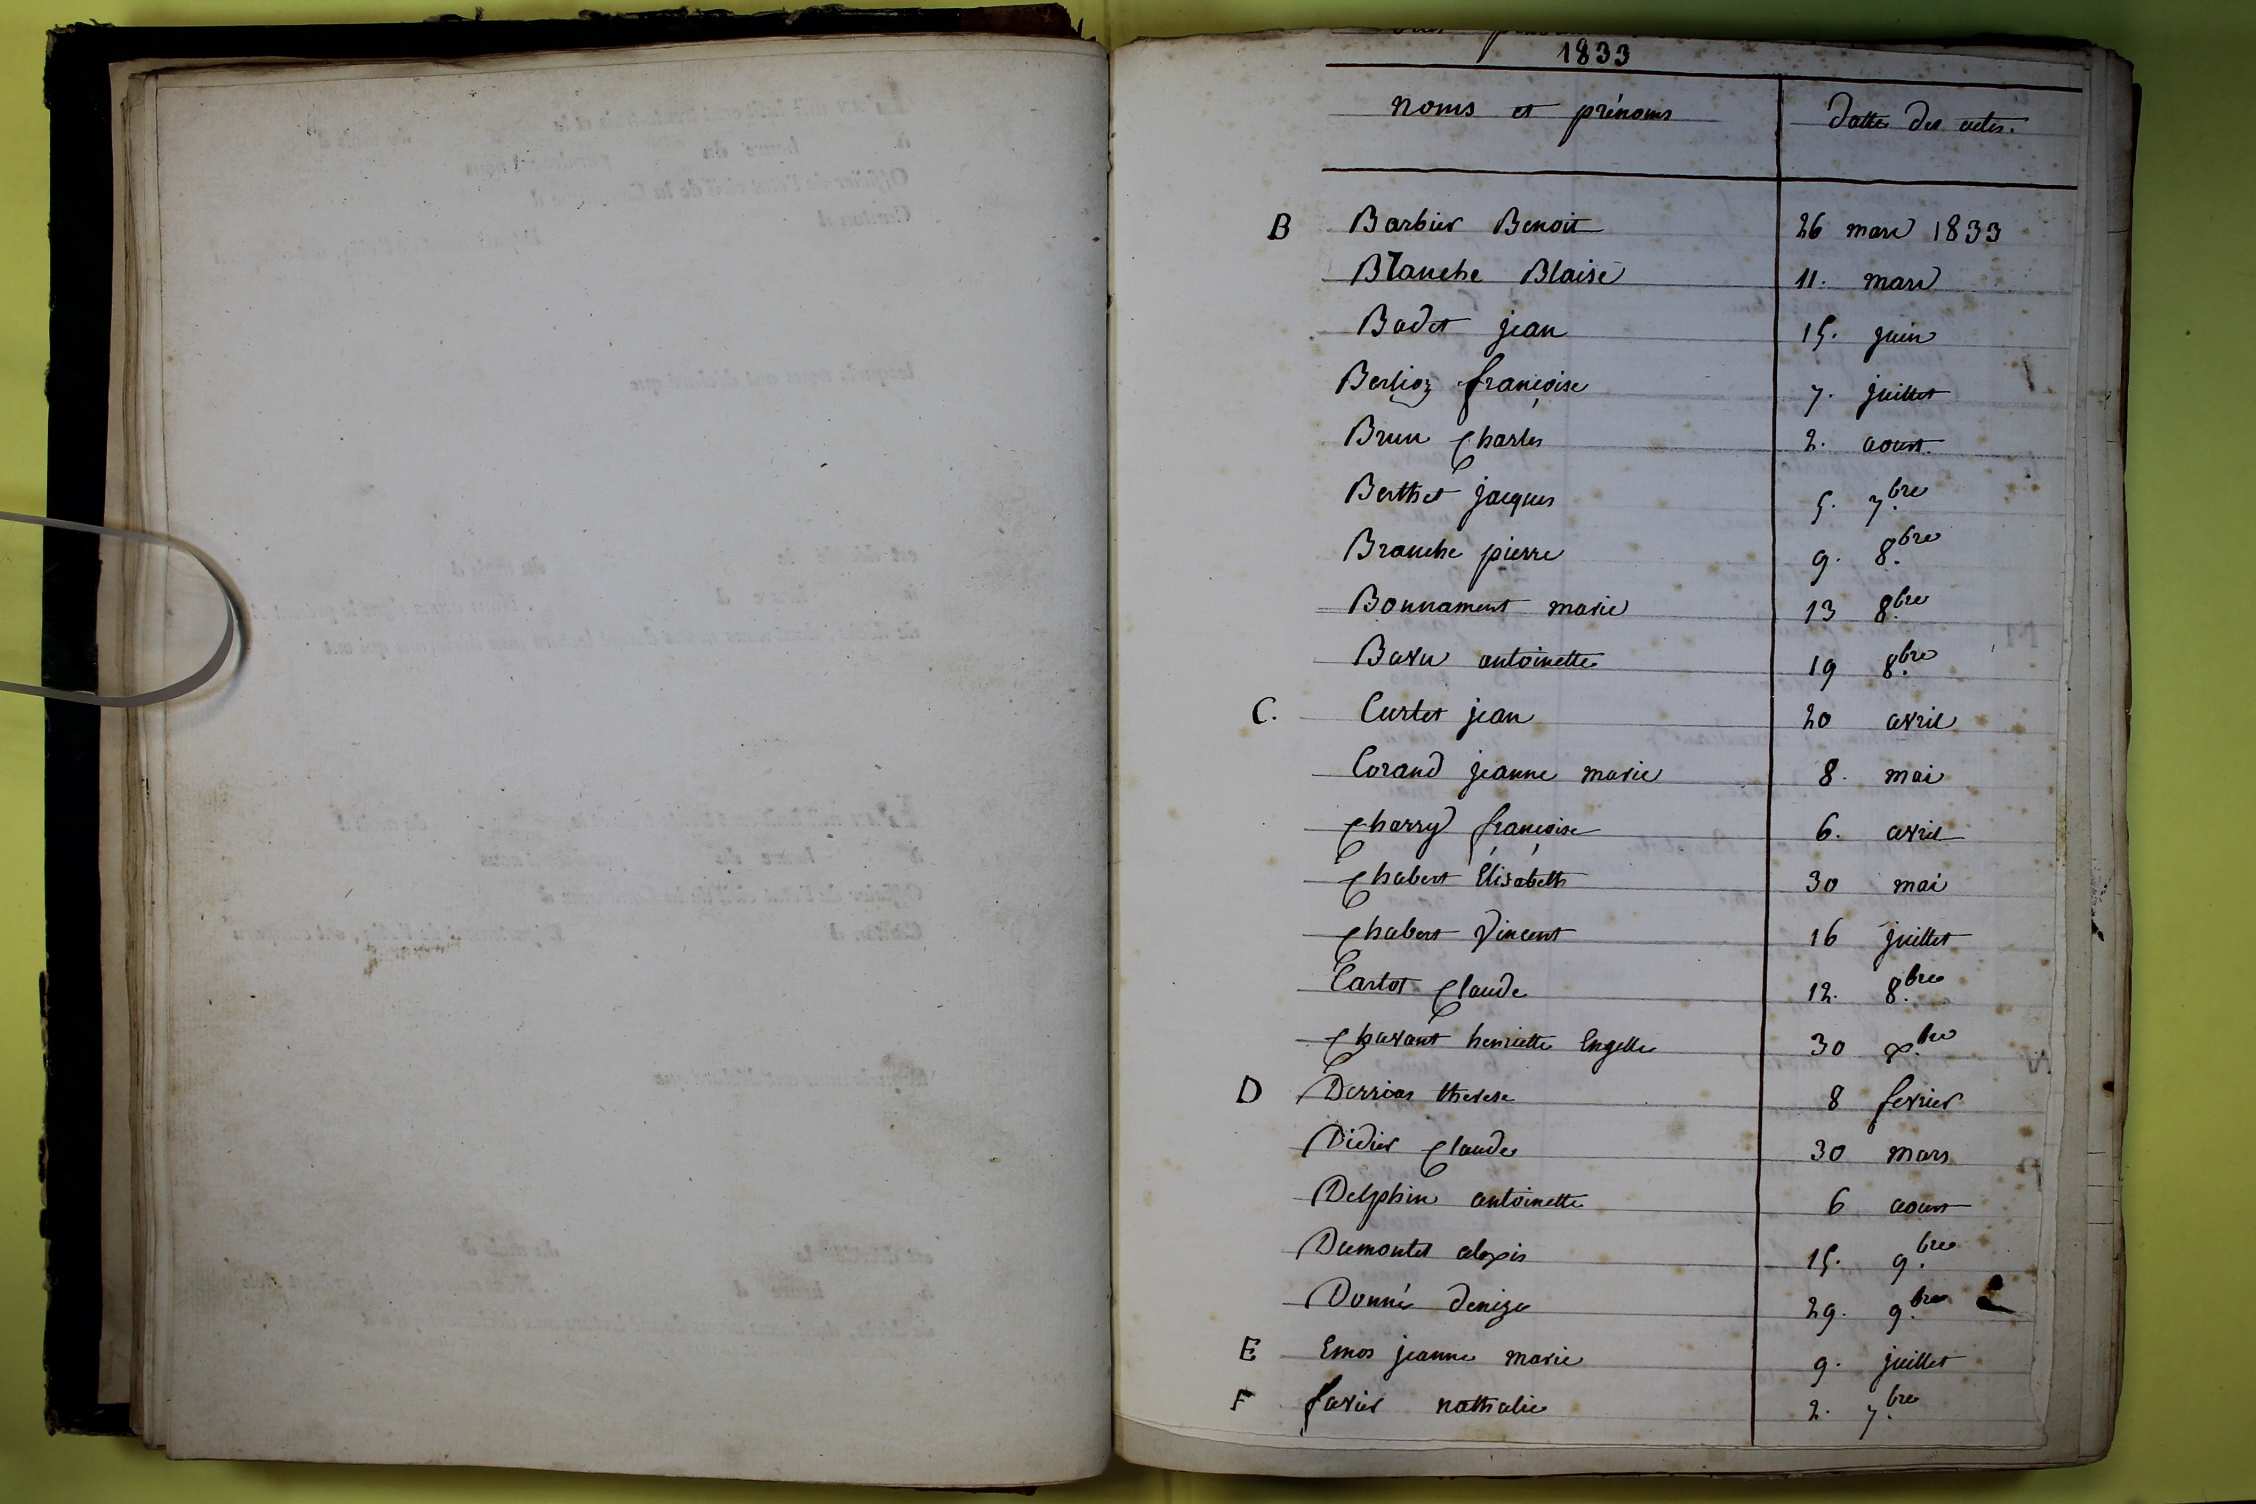 1833
noms et prénoms datte des actes.
B Barbier Benoit 26 mars 1833
Blanche Blaise 11. mars
Badet jean 15. juin
Berlioz françoise 7. juillet
Brun Charles 2. aoust
Berthet jacques 5. 7.bre
Branche pierre 9. 8.bre
Bonnament marie 13 8.bre
Bavu antoinette 19 8.bre
C. Curtet jean 20 avril
Corand jeanne marie 8. mai
Charry françoise 6. avril
Chabert Élisabeth 30 mai
Chabert Vincent 16 juillet
Carlot Claude 12. 8.bre
Chavant henriette Engelle 30 Xbre
D Derrias therese 8 fevrier
Didier Claude 30 mars
Delphin antoinette 6 aoust
Dumontet alexis 15. 9.bre
Donné denize 29. 9.bre
E Emos jeanne marie 9. juillet
F favier nathalie 2. 7.bre